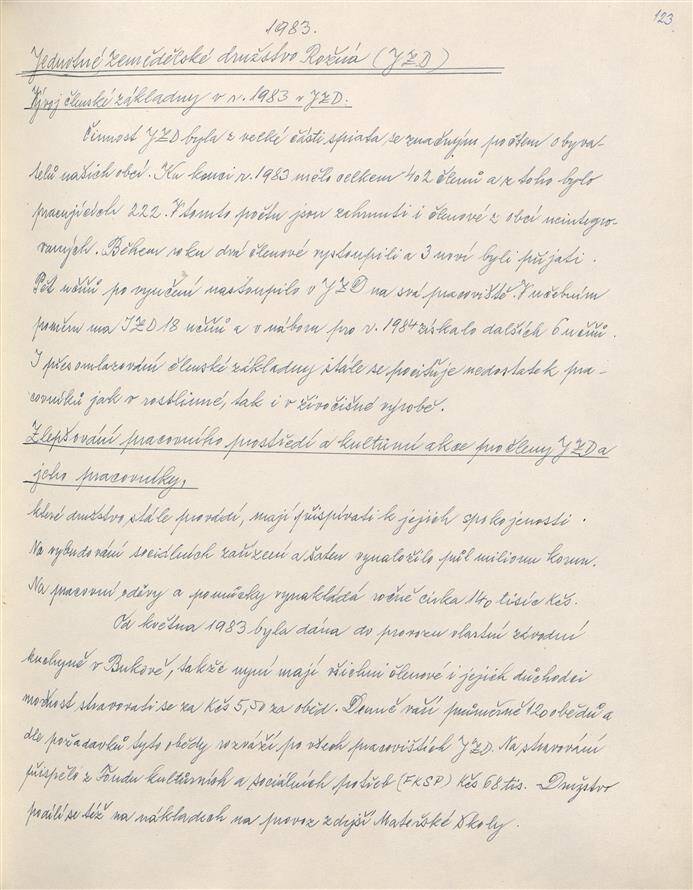 123.
1983.
Jednotné zemědělské družstvo Rožná (JZD)
Vývoj členské základny v r. 1983 v JZD.
Činnost JZD byla z velké části spiata se značným počtem obyva-
telů našich obcí. Ku konci r. 1983 mělo celkem 402 členů a z toho bylo
pracujících 222. V tomto počtu jsou zahrnuti i členové z obcí neintegro-
vaných. Během roku dva členové vystoupili a 3 noví byli přijati.
Pět učňů po vyučení nastoupilo v JZD na svá pracoviště. V učebním
poměru má JZD 18 učňů a v náboru pro r. 1984 získalo dalších 6 učňů.
I přes omlazování členské základny stále se pociťuje nedostatek pra-
covníků jak v rostlinné, tak i v živočišné výrobě.
Zlepšování pracovního prostředí a kulturní akce pro členy JZD a
jeho pracovníky,
které družstvo stále provádí, mají přispívati k jejich spokojenosti.
Na vybudování sociálních zařízení a šaten vynaložilo půl milionu korun.
Na pracovní oděvy a pomůcky vynakládá ročně cirka 140 tisíc Kčs.
Od května 1983 byla dána do provozu vlastní závodní
kuchyně v Bukově, takže nyní mají všichni členové i jejich důchodci
možnost stravovati se za Kčs 5,50 za oběd. Denně vaří průměrně 120 obědů a
dle požadavků tyto obědy rozváží po všech pracovištích JZD. Na stravování
přispělo z Fondu kulturních a sociálních potřeb (FKSP) Kčs 68 tis. Družstvo
podílí se též na nákladech na provoz zdejší Mateřské školy.